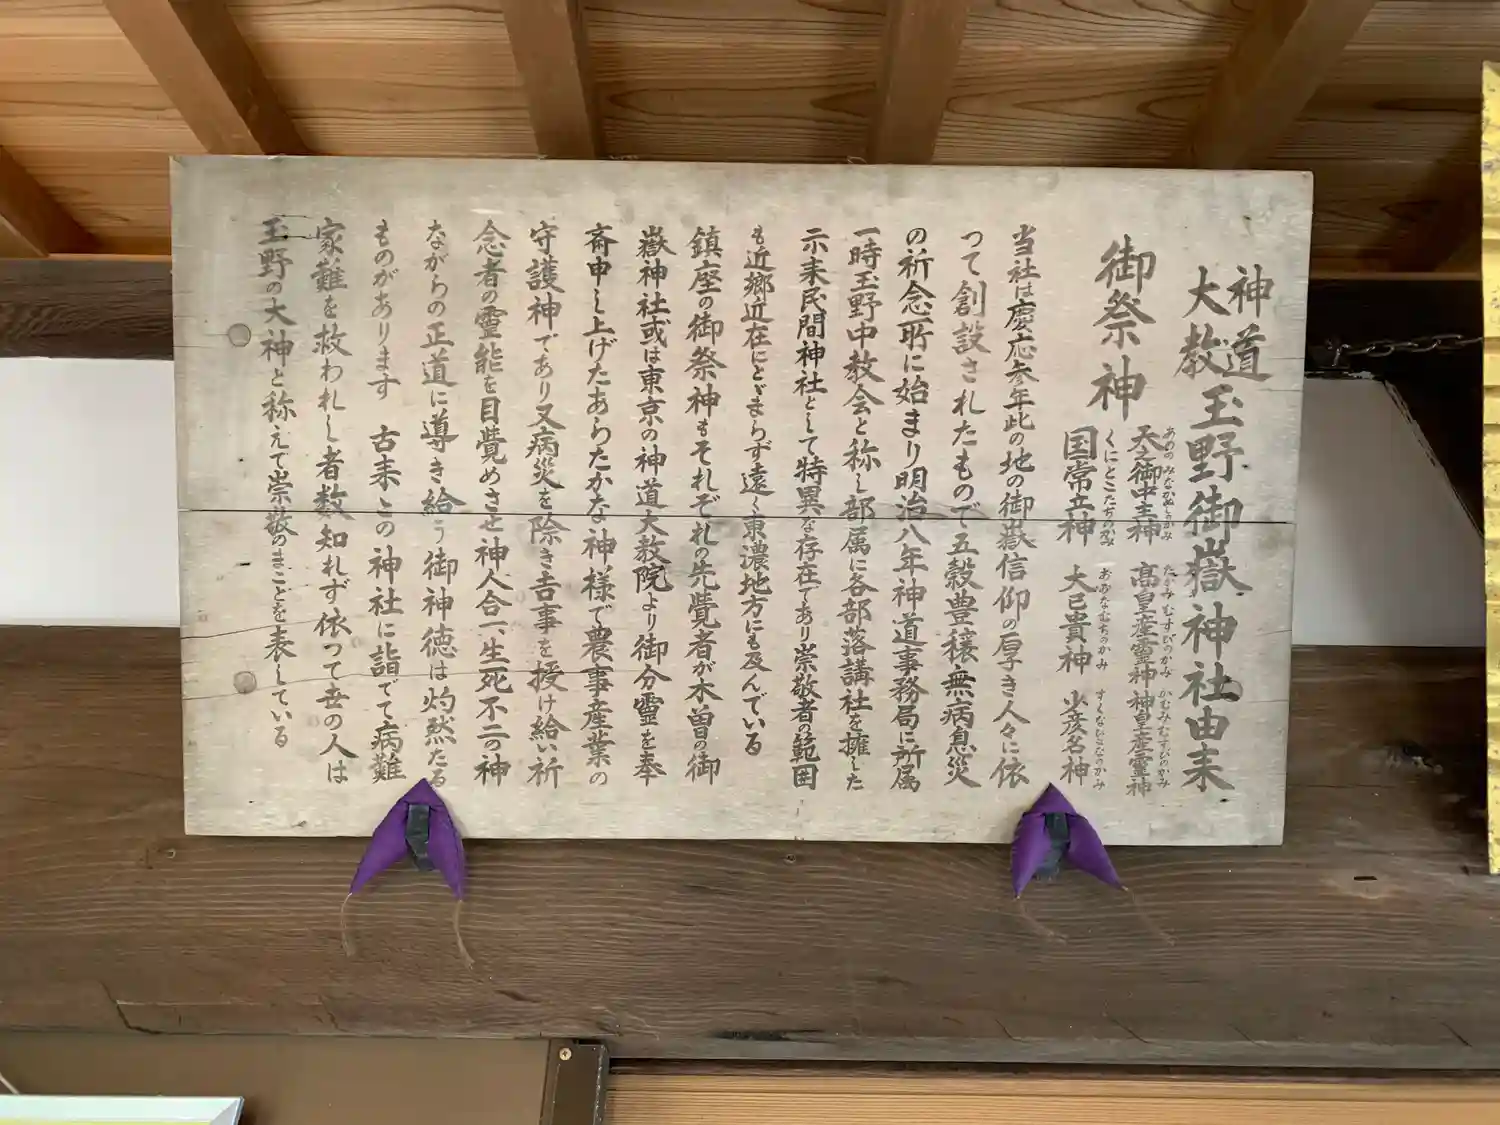 神道大教 玉野御嶽神社由来
御祭神
天之御中主神 高皇産霊神 神皇産霊神
あめのみなかぬしのかみ たかみむすびのかみ かむみむすびのかみ
国常立神 大己貴神 少彦名神
くにとこたちのかみ おおなむちのかみ すくなひこなのかみ
当社は慶応参年此の地の御嶽信仰の厚き人々に依
つて創設されたもので五穀豊穣無病息災
の祈念所に始まり明治八年神道事務局に所属
一時玉野中教会と称し部属に各部落講社を擁した
示来民間神社として特異な存在であり崇敬者の範囲
も近郷近在にとゞまらず遠く東濃地方にも及んでいる
鎮座の御祭神もそれぞれの先覺者が木曽の御
嶽神社或は東京の神道大教院より御分霊を奉
斎申し上げたあらたかな神様で農事産業の
守護神であり又病災を除き吉事を授け給い祈
念者の霊能を目覺めさせ神人合一生死不二の神
ながらの正道に導き給う御神徳は灼然たる
ものがあります 古来この神社に詣でて病難
家難を救われし者数知れず依つて世の人は
玉野の大神と称えて崇敬のまことを表している